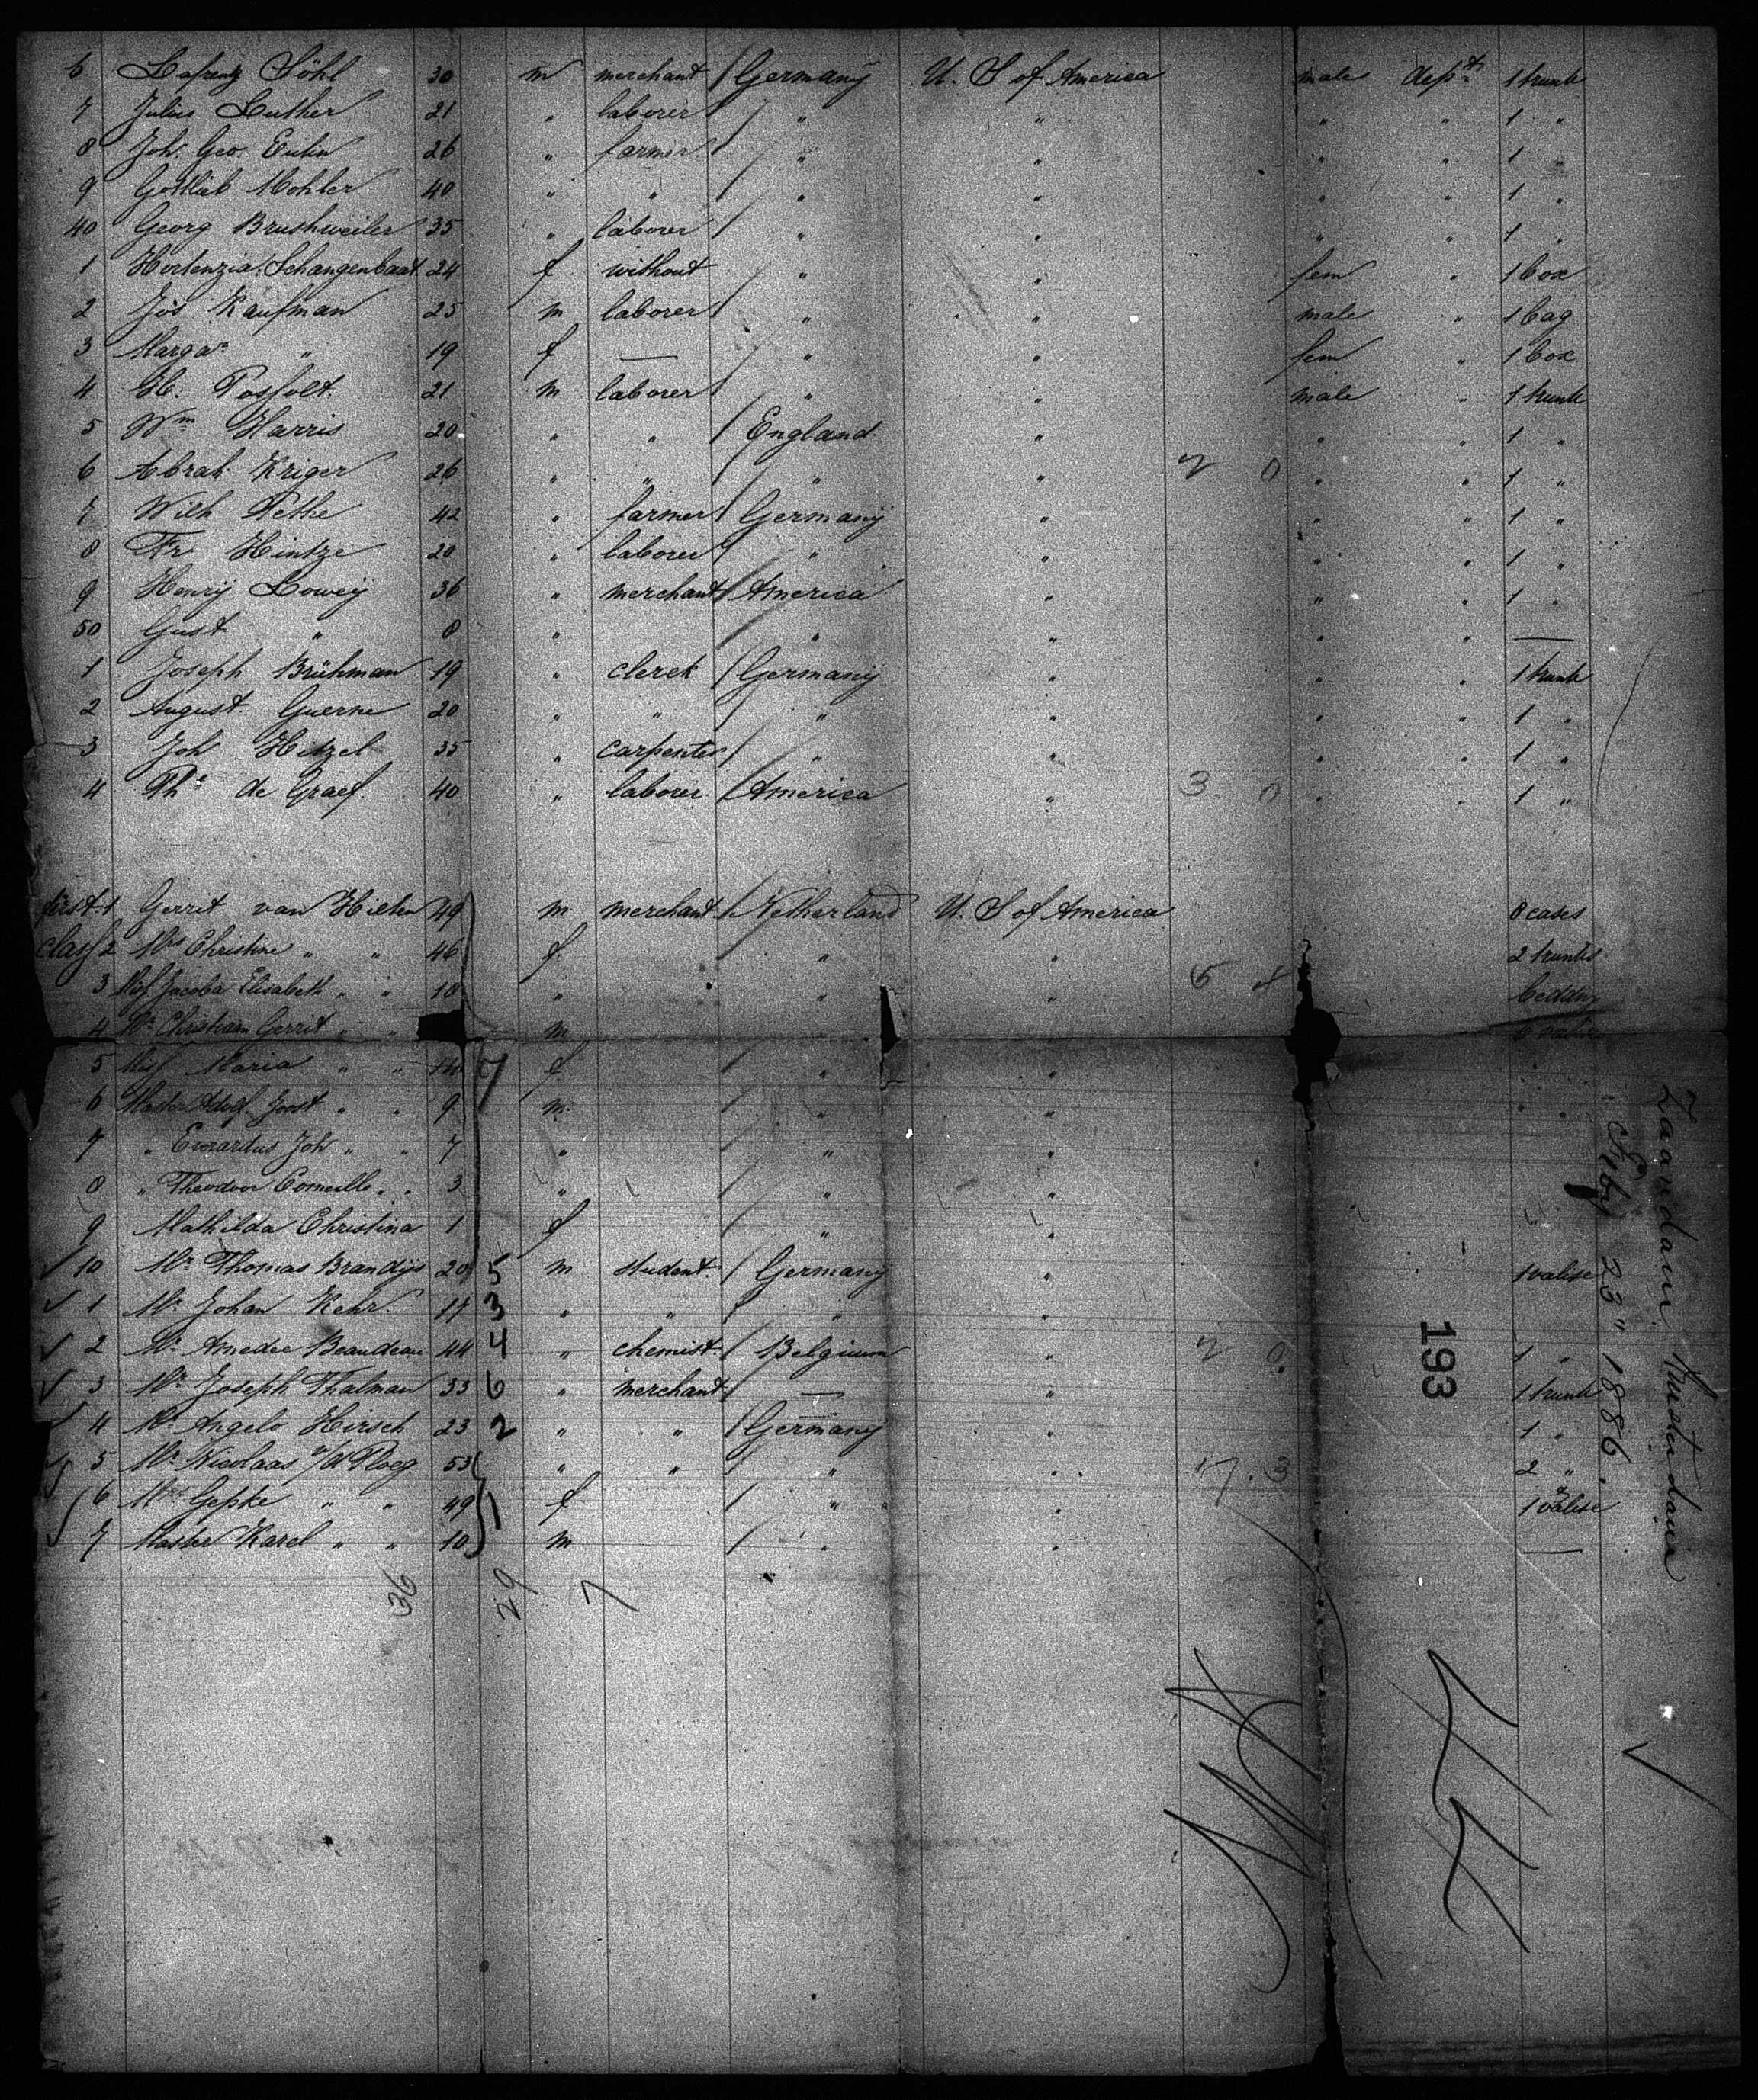 6 Lafrentz Söhl 30 m merchant / Germany U. S of America male dep.t 1 trunk
7 Julius Luther 21 " laborer / " " " " 1 "
8 Joh. Geo. Eulin 26 " farmer / " " " " 1 "
9 Gottlieb Mohler 40 " " / " " " " 1 "
40 Georg Brushweiler 35 " laborer / " " " " 1 "
1 Hortenzia Schangenbaat 24 f without " " fem " 1 box
2 Jos Kaufman 25 m laborer / " " male " 1 bag
3 Marga " 19 f — " " fem " 1 box
4 Posfolt. 21 m laborer / " " male " 1 trunk
5 Wm Harris 20 " " / England " " " 1 "
6 Abrah. Kriger 26 " " / " " 2 0 " " 1 "
7 Wilh Nethe 42 " farmer / Germany " " " 1 "
8 Fr Hintze 20 " laborer / " " " " 1 "
9 Henrij Loweij 36 " merchant / America " " " 1 "
50 Gust " 8 " " " " " —
1 Joseph Brühman 19 " clerck / Germany " " " 1 trunk
2 August. Guerne 20 " " / " " " " 1 "
3 Joh Hetzel 35 " carpenter / " " " " 1 "
4 Ths de Graef. 40 " laborer. / America " 3 0 " " 1 "
first 1 Gerrit van Hielen 49 m merchant / Netherland U. S of America 8 cases
class 2 Mrs Christine " " 46 f " " 2 trunks
3 Miss Jacoba Elisabeth " " 18 " " " 6 bedding
4 Mr Christiaan Gerrit " " m "
5 Miss Maria " " 14 7 f / " "
6 Master Adolf Joost " " 9 m. / " "
7 " Everardus Joh " " 7 " / " "
8 " Theodoor Corneille " " 3 " / " "
9 Mathilda Christina 1 f / " "
10 Mr Thomas Brandijs 20 5 m student. / Germany " 1 valise
1 Mr Johan Kehr. 17 3 " " / " "
2 Mr Amedee Beaudeau 44 4 " chemist / Belgium " 2 0 1 "
3 Mr Joseph Thalman 33 6 " merchant / — " 1 trunk
4 Mr Angelo Hirsch 23 2 " " / Germany " 1 "
5 Mr Nicolaas v/d Ploeg 53 " " / " " 17.3 2 "
6 Mrs Gepke " " 49 1 f / " " 1 valise
7 Master Karel " " 10 m / " " —
36 29 7
Zaandam Amsterdam
Feby 23" 1886.
193